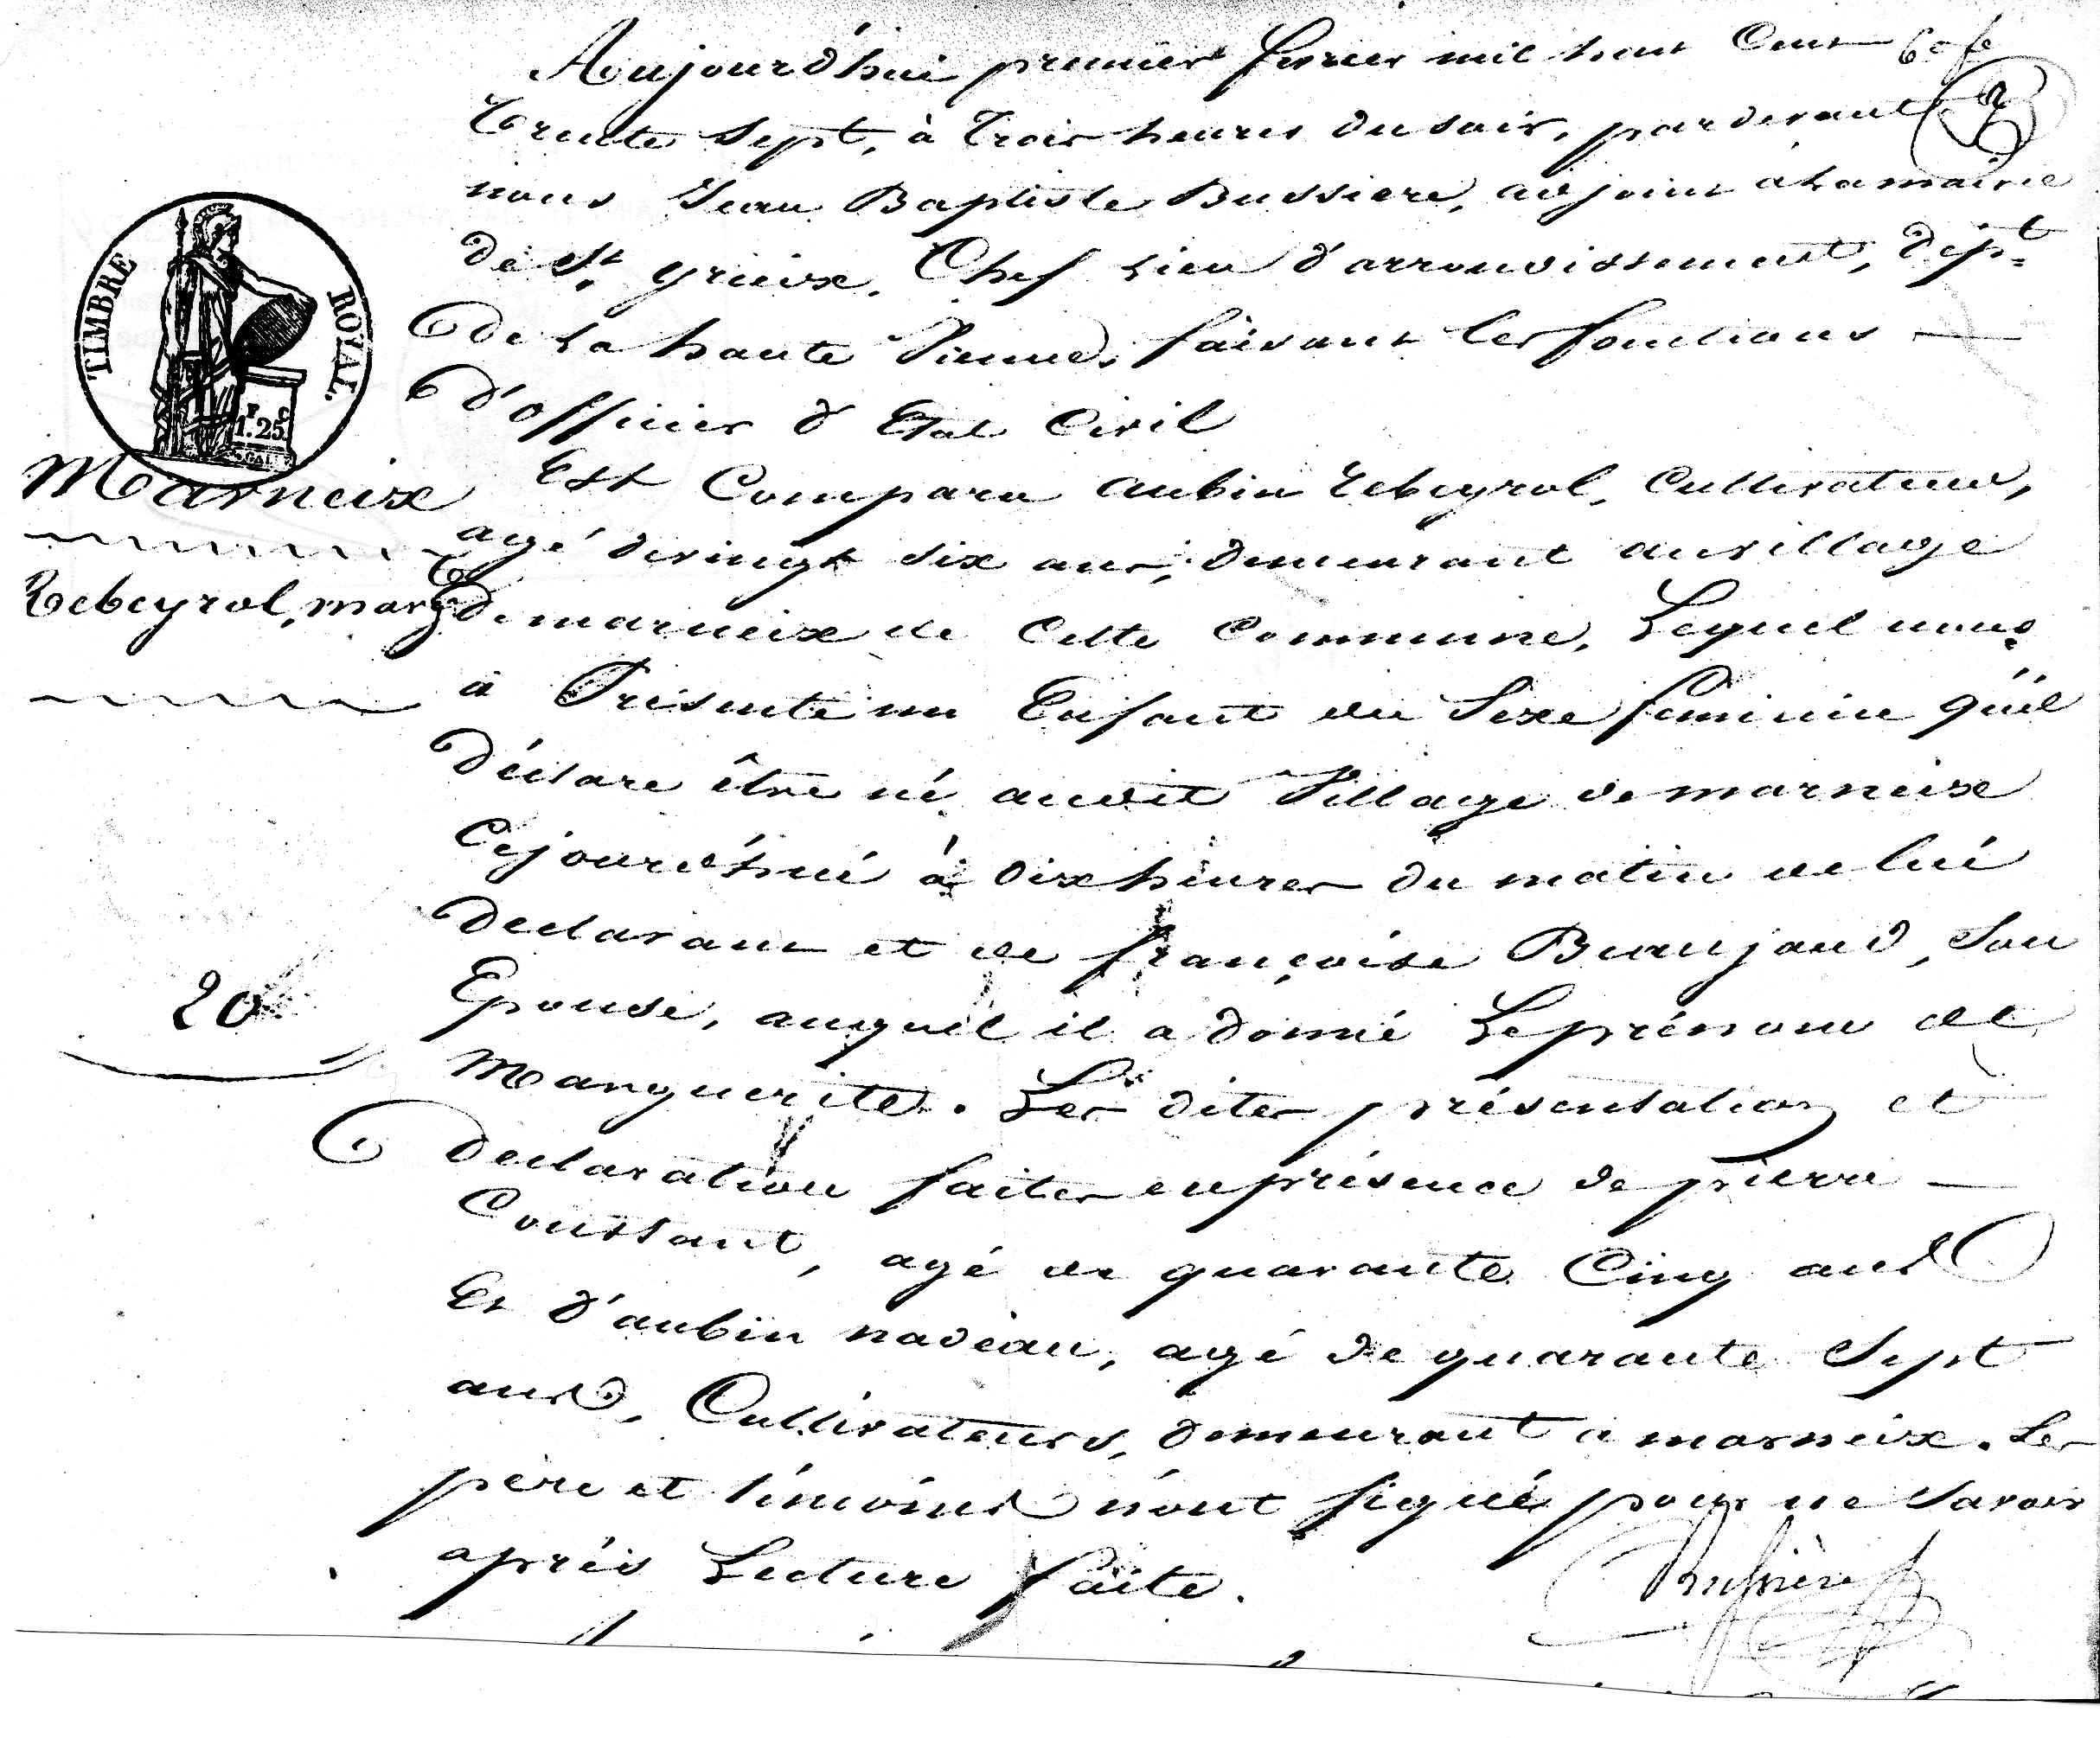 Aujourd'hui premier fevrier mil huit Cent
Trente Sept, à Trois heures du soir, pardevant
nous Jean Baptiste Bussiere, adjoint à La mairie
de St. Yrieix, Chef Lieu d'arrondissement, Dépt.
de La haute Vienne, faisant les fonctions
d'officier d'Etat Civil
TIMBRE ROYAL.
F C
1.25
Marneix
Est Comparu aubin Rebeyrol, Cultivateur,
agé de vingt six ans, demeurant au village
Rebeyrol, margte
de marneix de Cette Commune, Lequel nous
à Présenté un Enfant du Sexe feminin qu'il
déclare être né audit Village de marneix
Cejourd'hui à dix heures du matin de lui
declarant et de françoise Beaujaud, Son
20
Epouse, auquel il a donné Le prénom de
Marguerite. Les dites présentation et
declaration faites en présence de pierre
Coussant, agé de quarante Cinq ans
Et d'aubin nadeau, agé de quarante Sept
ans, Cultivateurs, demeurant a marneix. Les
père et témoins n'ont signé pour ne Savoir
après Lecture faite.
Bussière